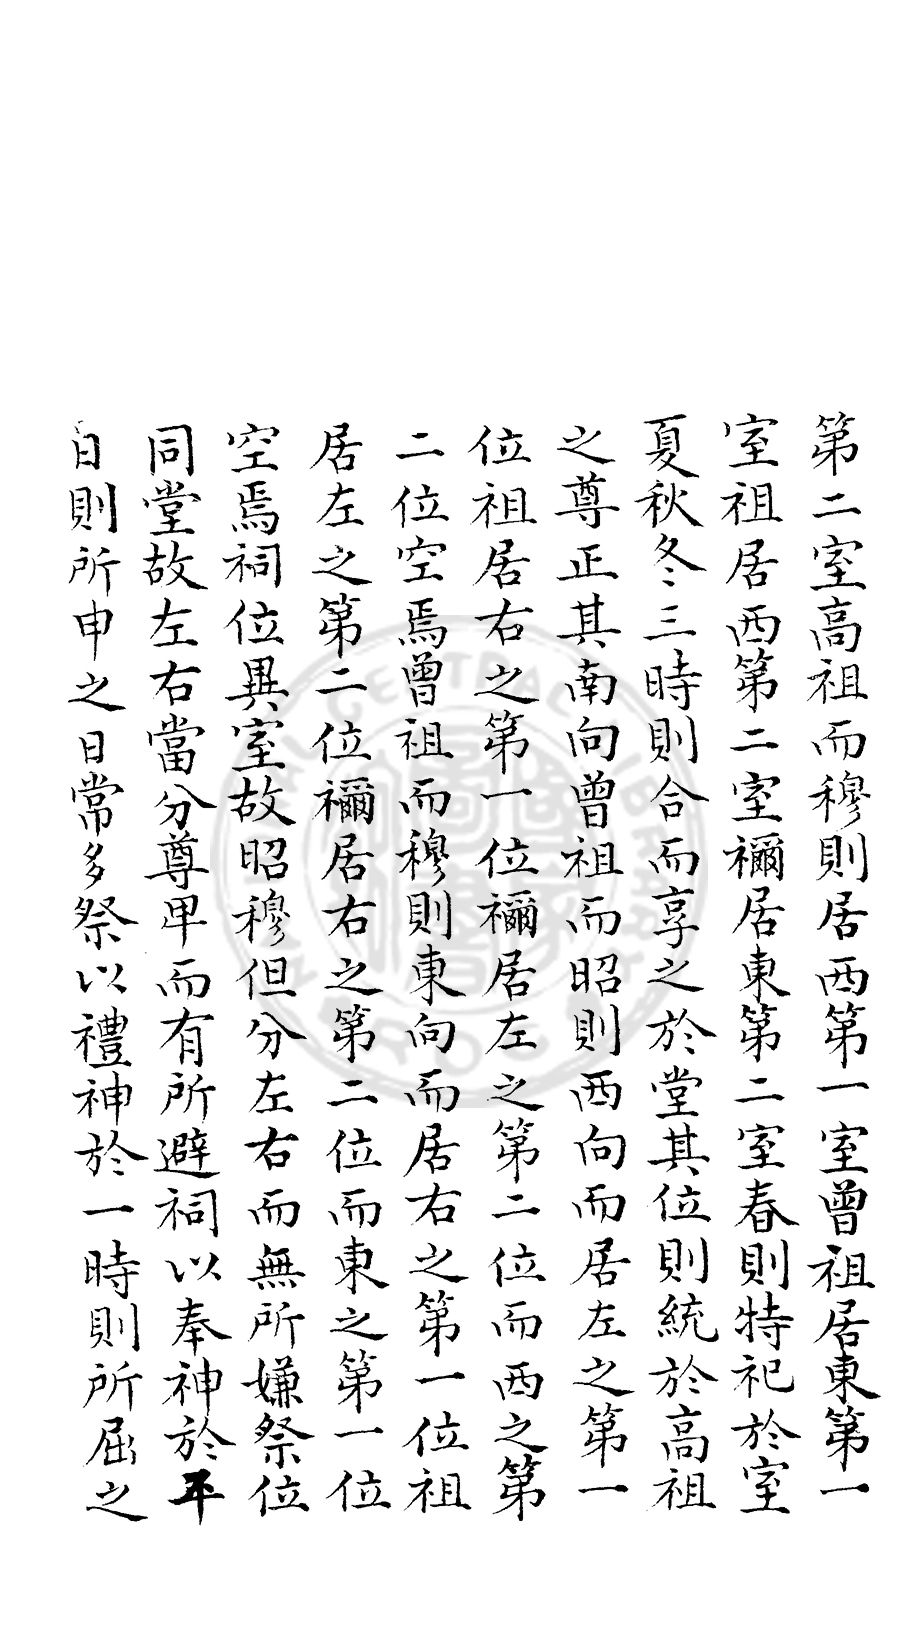 第二室高祖而穆則居西第一室曾祖居東第一
室祖居西第二室禰居東第二室春則特祀於室
夏秋冬三時則合而享之於堂其位則統於高祖
之尊正其南向曾祖而昭則西向而居左之第一
位祖居右之第一位禰居左之第二位而西之第
二位空焉曾祖而穆則東向而居右之第一位祖
居左之第二位禰居右之第二位而東之第一位
空焉祠位異室故昭穆但分左右而無所嫌祭位
同堂故左右當分尊甲而有所避祠以奉神於平
日則所申之日常多祭以禮神於一時則所屈之